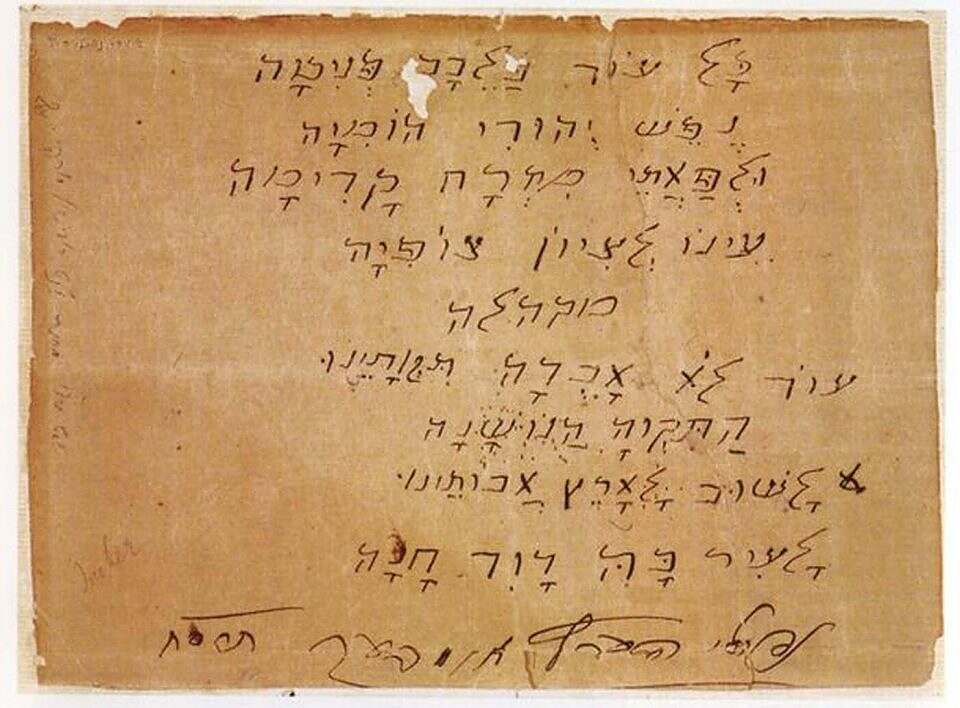 כָּל עוֹד בַּלֵּבָב פְּנִימָה
נֶפֶשׁ יְהוּדִי הוֹמִיָּה
וּלְפַאֲתֵי מִזְרָח קָדִימָה
עֵינוֹ לְצִיוֹן צוֹפִיָּה
מקהלה
עוֹד לֹא אָבְדָה תִּקְוָתֵינוּ
הַתִּקְוָה הַנּוֹשָׁנָה
לָשׁוּב לְאֶרֶץ אֲבוֹתֵינוּ
לָעִיר בָּהּ דָוִד חָנָה
נפתלי הערץ אימבער תרסח
Imber